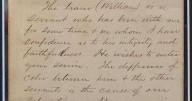 The bearer (William) is a
servant who has been with me
for some time & in whom I have
confidence as to his integrity and
faithfulness. He wishes to enter
your service. The difference of
color between him & the other
servants is the cause of our